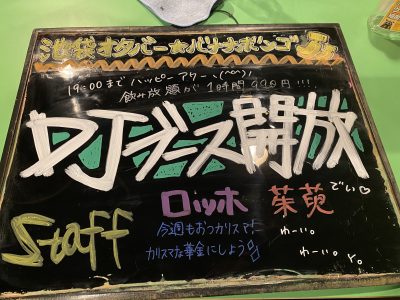 池袋オタバー☆バナナボンゴ
19:00までハッピーアワー＼(^^)／
飲み放題が1時間980円!!!
DJブース開放
Staff
ロッホ
今週もおつカリスマ!
カリスマな華金にしよう
茱萸でい♡
わーい。
わーい。Y。